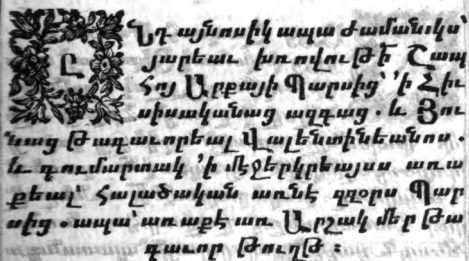 Ընդ այնոսիկ ապա ժամանակս՝
յարեաւ խռովութի Շապ
հոյ Արքայի Պարսից՝ 'ի Հիւ
սիսականաց ազգաց. և Յու
նաց թագաւորեալ Վալենտինեանոս.
և գումարտակ 'ի մէջերկրեայսս առա
քեալ՝ հալածական առնէ զզօրս Պար
սից. ապա՝ առաքէ առ Արշակ մեր թա
գաւոր թուղթ :